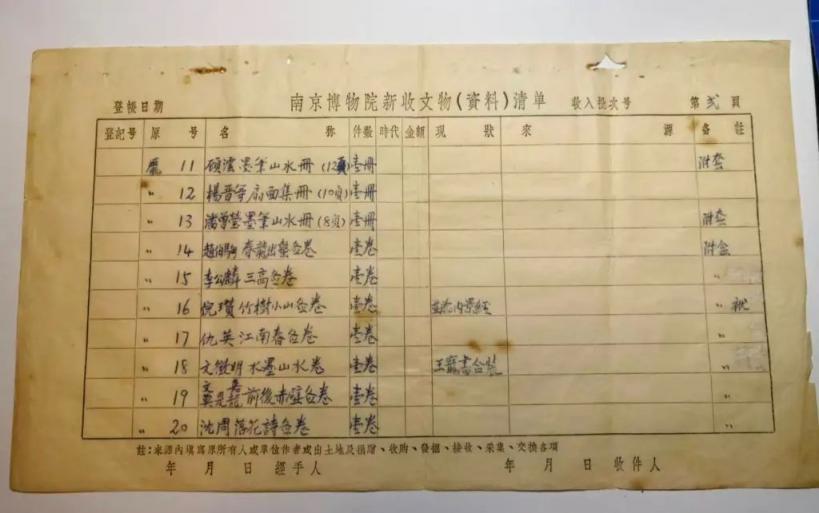 登帳日期 南京博物院新收文物(資料)清单 收入批次号 第 貳 頁
登記号 原号 名称 件数 時代 金額 現狀 來源 备註
龐 11 顧澐墨筆山水冊(12頁) 壹冊 附套
〃 12 楊晋等扇面集冊(10頁) 壹冊
〃 13 潘曾瑩墨筆山水冊(8頁) 壹冊 附套
〃 14 趙伯駒春龍出蟄卷 壹卷 附盒
〃 15 李公麟三高卷 壹卷 〃
〃 16 倪瓚竹樹小山卷 壹卷 〃
〃 17 仇英江南春卷 壹卷 〃
〃 18 文徵明水墨山水卷 壹卷 王寵書合裝 〃
〃 19 前後赤壁卷 壹卷 〃
〃 20 沈周落花詩卷 壹卷 〃
註:來源內填寫原所有人或單位作者或出土地及捐贈、收購、發掘、接收、采集、交換各項
年 月 日 經手人 年 月 日 收件人